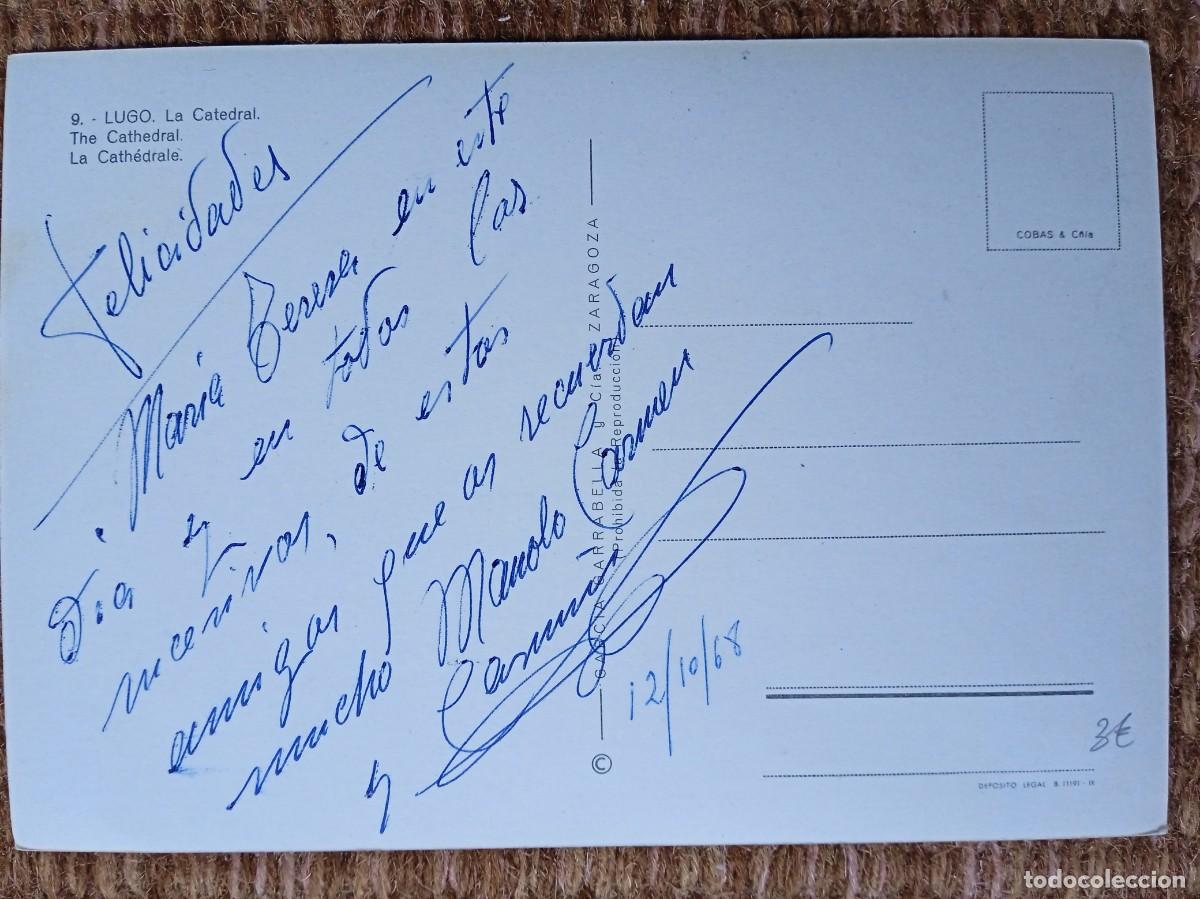 9. - LUGO. La Catedral.
The Cathedral.
La Cathédrale.
Felicidades
Maria Teresa en este
dia y en todos las
sucerivos, de estos
amigos que as recuerdan
mucho Manolo Carmen
y Casimiro
12/10/68
GARCIA GARRABELLA y Cía. ZARAGOZA
(Prohibida la Reproducción)
©
COBAS & Cñía
3€
DEPOSITO LEGAL B. 11191 - IX
todocoleccion